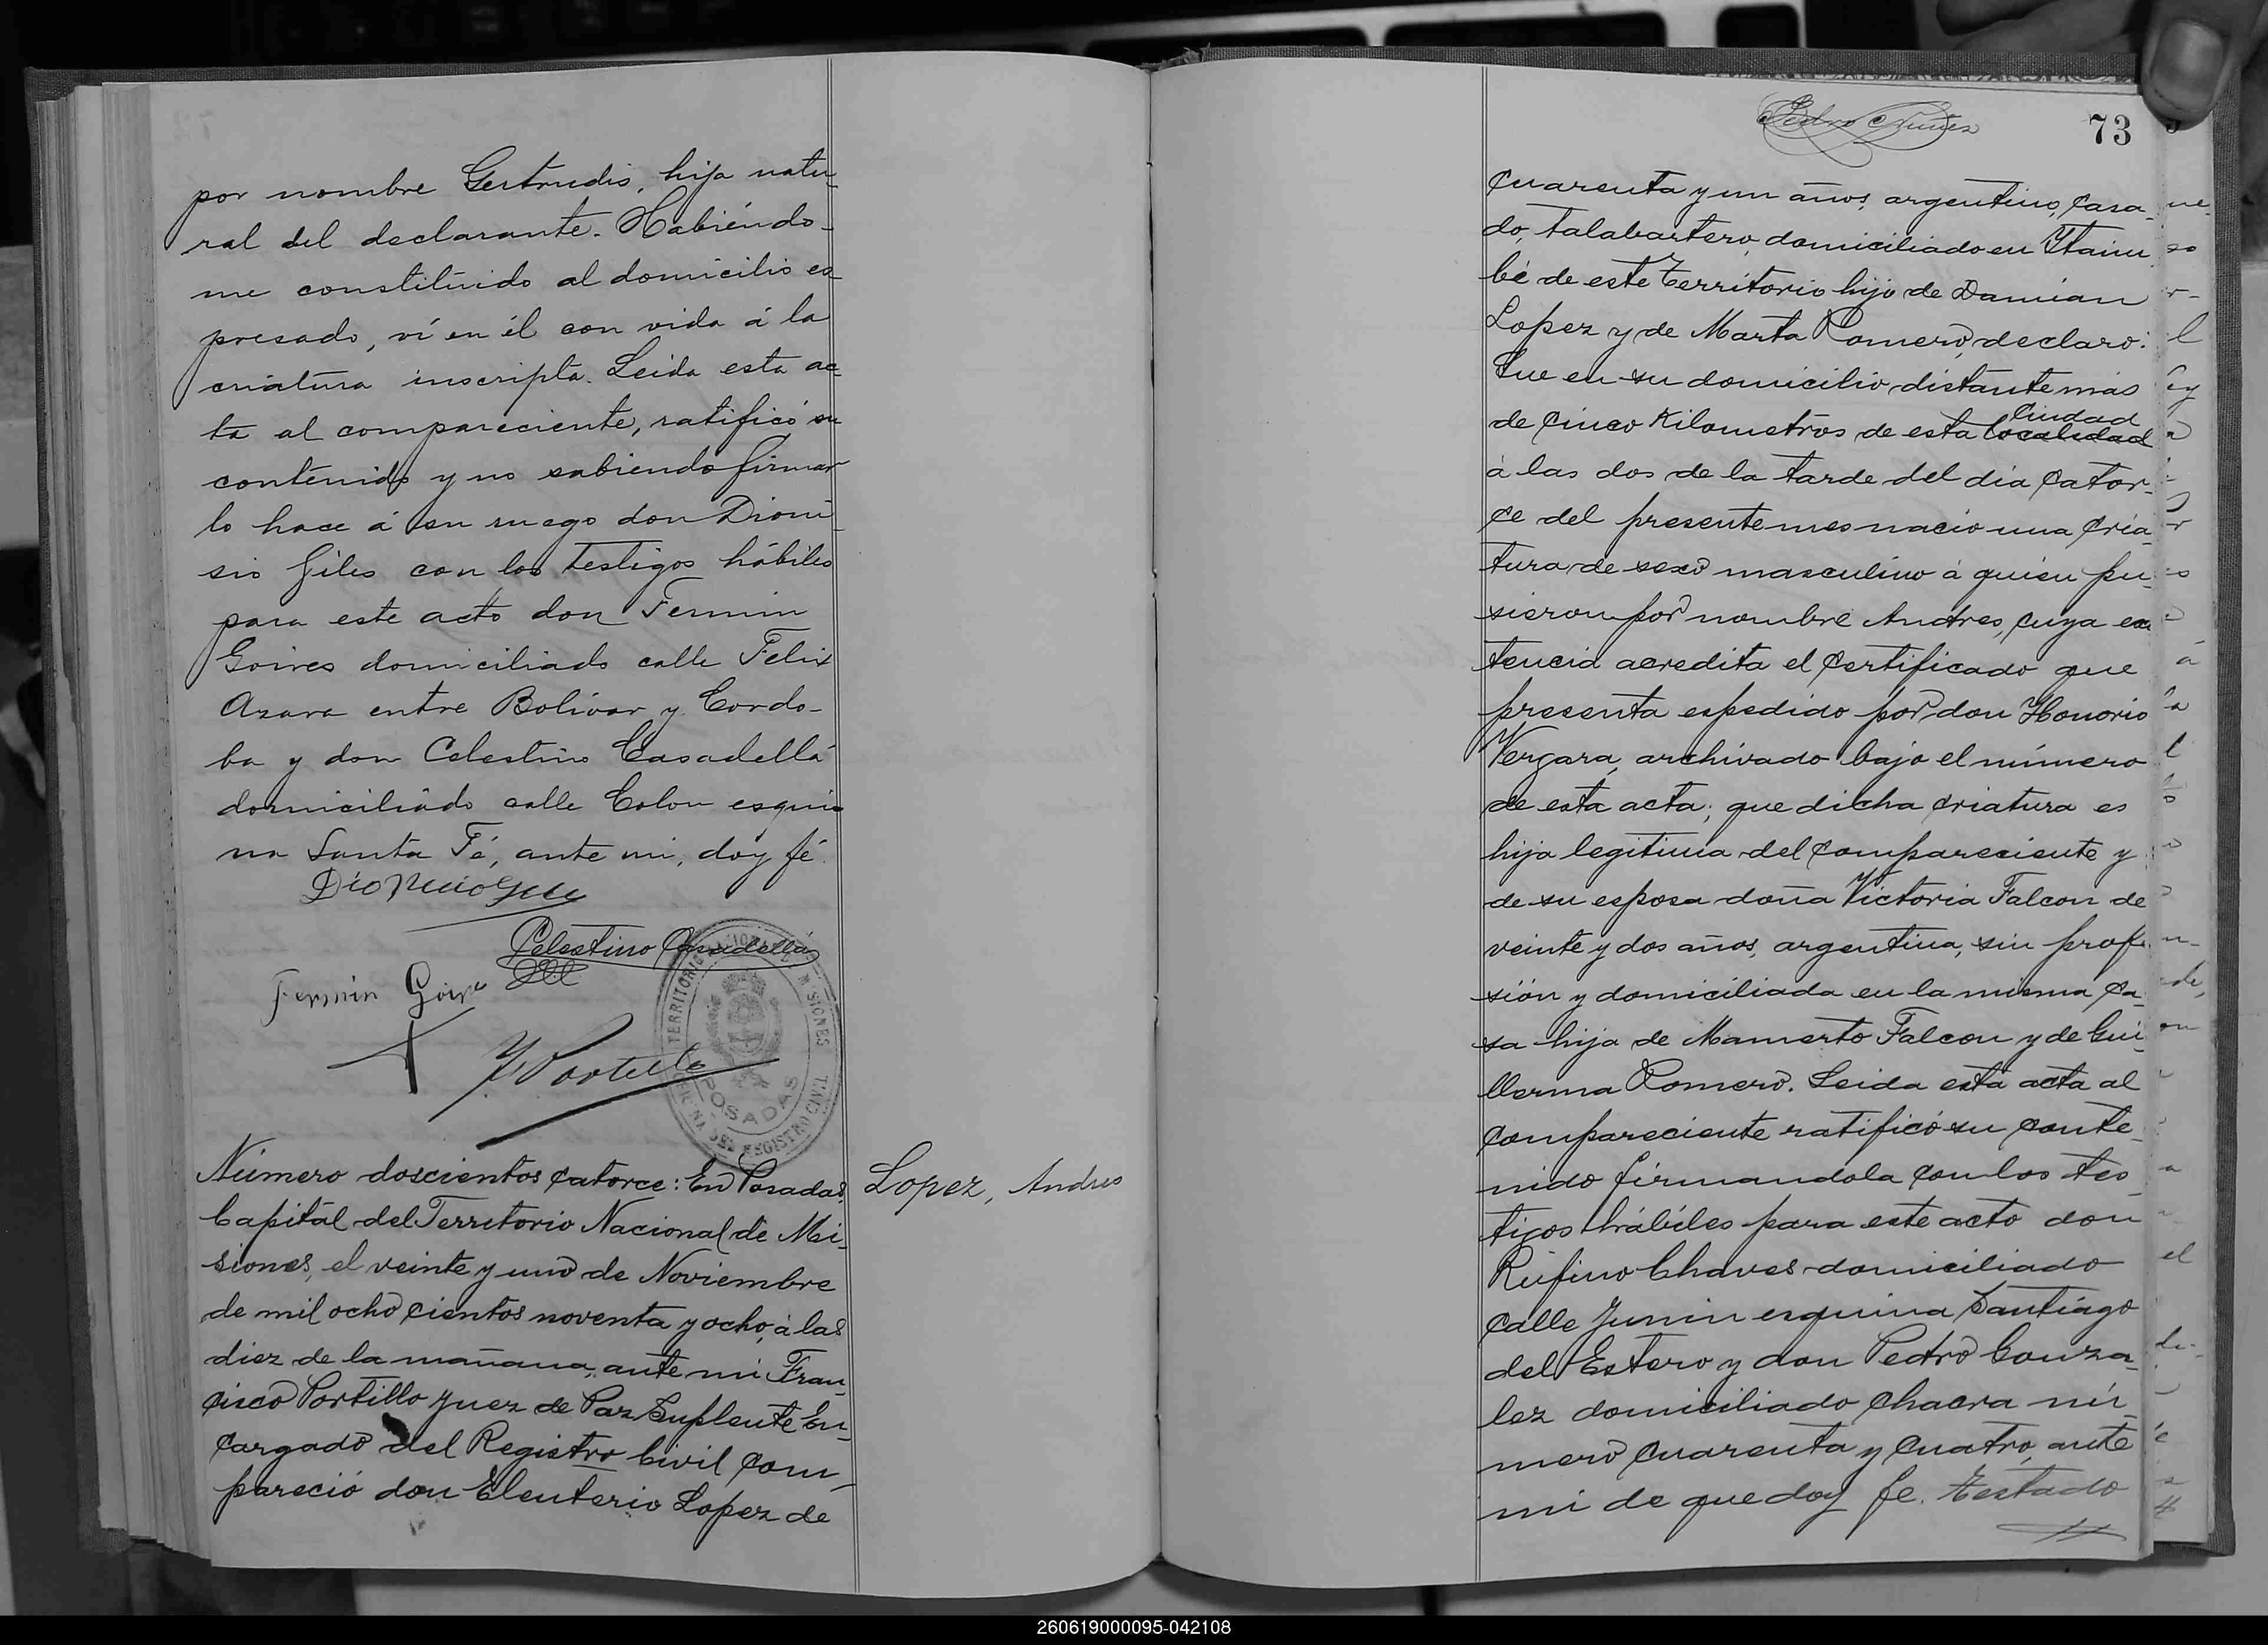 por nombre Gertrudis, hija natu-
ral del declarante. Habiéndo-
me constituido al domicilio es-
presado, ví en él con vida á la
criatura inscripta. Leida esta ac-
ta al compareciente, ratificó su
contenido y no sabiendo firmar
lo hace á su ruego don Dioni-
sio Giles con los testigos hábiles
para este acto don Fermin
Goires domiciliado calle Felix
Azara entre Bolivar y Cordo-
ba y don Celestino Casadellá
domiciliado calle Colon esqui-
na Santa Fé, ante mi, doy fé.
Celestino Casadellás
Fermin Goire
F Portillo
TERRITORIO NACIONAL DE MISIONES
POSADAS
DEL REGISTRO CIVIL
Número doscientos catorce: En Posadas,
Capital del Territorio Nacional de Mi-
siones, el veinte y uno de Noviembre
de mil ocho cientos noventa y ocho, à las
diez de la mañana, ante mi Fran-
cisco Portillo Juez de Paz Suplente En-
cargado del Registro Civil com-
pareció don Eleuterio Lopez de
Lopez, Andres
Pedro Nuñez
73
cuarenta y un años, argentino, casa-
do, talabartero, domiciliado en Ytaim-
bé de este territorio hijo de Damian
Lopez y de Marta Romero, declaro:
Que en su domicilio distante más
de cinco Kilometros de esta localidad
Ciudad
à las dos de la tarde del dia cator-
ce del presente mes nacio una cria-
tura de sexo masculino à quien pu-
sieron por nombre Andres, cuya exis
tencia acredita el certificado que
presenta espedido por don Honorio
Vergara, archivado bajo el número
de esta acta; que dicha criatura es
hija legitima del compareciente y
de su esposa doña Victoria Falcon de
veinte y dos años, argentina, sin profe
sión y domiciliada en la misma ca-
sa hija de Mamerto Falcon y de Gui-
llerma Romero. Leida esta acta al
compareciente ratificó su conte-
nido firmandola con los tes-
tigos hábiles para este acto don
Rufino Chaves domiciliado
calle Junin esquina Santiago
del Estero y don Pedro Gonza-
lez domiciliado chacra nú-
mero cuarenta y cuatro, ante
mi de que doy fe. Testado
260619000095-042108